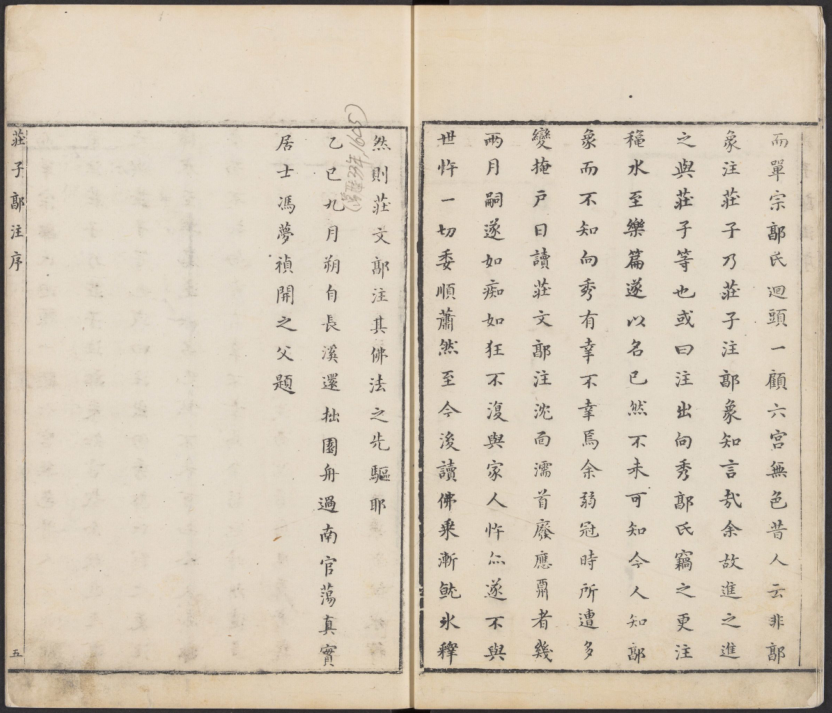 而單宗郭氏迴頭一顧六宮無色昔人云非郭
象注莊子乃莊子注郭象知言哉余故進之進
之與莊子等也或曰注出向秀郭氏竊之更注
穐水至樂篇遂以名已然不未可知今人知郭
象而不知向秀有幸不幸焉余弱冠時所遭多
變掩戶日讀莊文郭注沈面濡首廢應酬者幾
兩月嗣遂如痴如狂不復與家人忤亦遂不與
世忤一切委順蕭然至今後讀佛乘漸就氷釋
然則莊文郭注其佛法之先驅耶
乙巳九月朔自長溪還拙園舟過南官蕩真實
居士馮夢禎開之父題
莊子郭注序
五